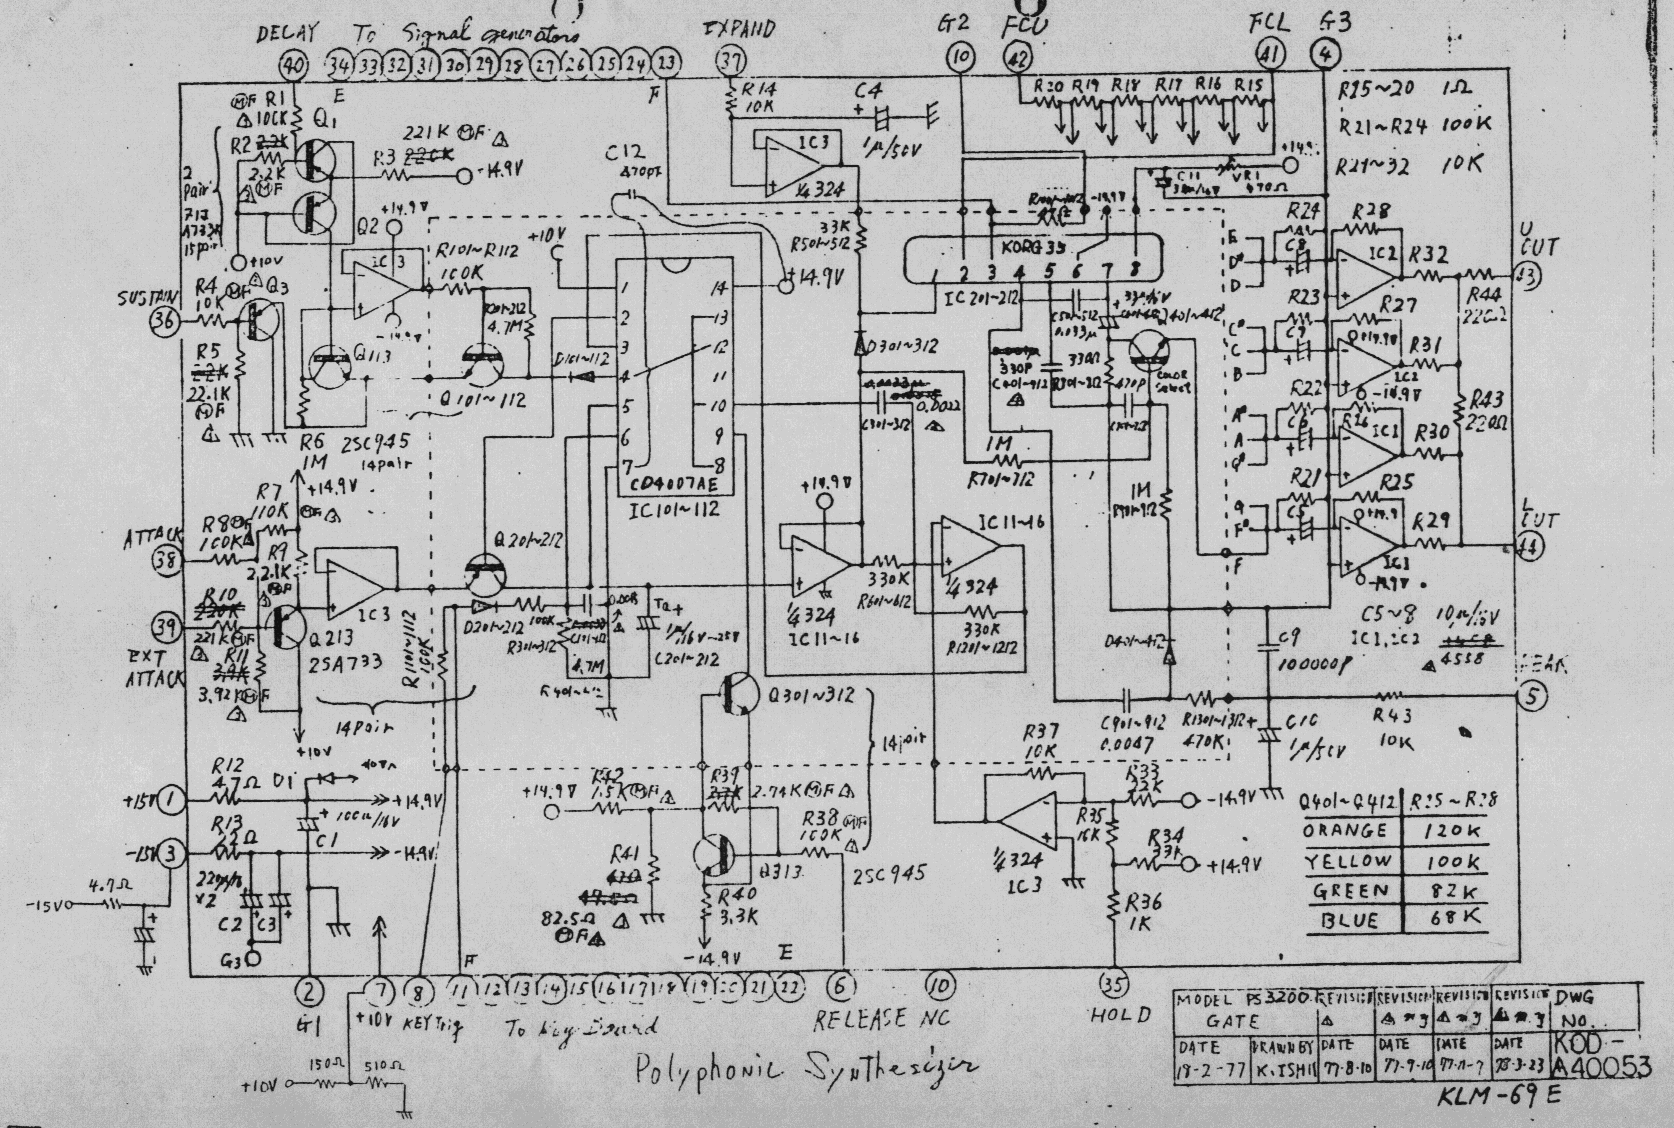 DELAY To Signal generators EXPAND G2 FCU FCL G3
40 34 33 32 31 30 29 28 27 26 25 24 23 37 10 42 41 4
E F
R14 10K C4 1μ/50V
R20 R19 R18 R17 R16 R15
R15~20 1Ω
R21~R24 100K
R21~32 10K
MF R1 100K
Q1
R2 22K 2.2K MF
221K MF
R3 220K -14.9V
2 pair
15pair
C12 470PF
IC3 1/4 324
C11
VR1 470Ω +14.9
Q2 +14.9V
+10V
R4 10K MF Q3
SUSTAIN 36
R5 22K 22.1K MF
IC3 -14.9V
R101~R112 100K
+10V
4.7M
Q113
D101~112
Q101~112
R6 1M
2SC945
14pair
1 2 3 4 5 6 7 14 13 12 11 10 9 8
CD4007AE
IC101~112
+14.9V
33K R501~512
KORG 35
1 2 3 4 5 6 7 8
IC201~212
-14.9V
D301~312
0.0022
C301~312
0.033μ
330P
330Ω
470P
COLOR select
1M R701~712
1M
R24 R28 C8 IC2 R32
R23 R27 C7 +14.9V R31 IC2 -14.9V
R22 R26 C6 IC1 R30
R21 R25 C5 +14.9 R29 IC1 -14.9V
E D# D
C# C B
A# A G#
G F# F
R44 220Ω
R43 220Ω
U OUT 43
L OUT 44
R7 110K MF +14.9V
ATTACK 38
R8 MF 100K
R9 2.21K MF
R10 220K 221K MF
39 EXT ATTACK
R11 3.9K 3.92K MF
IC3
Q213 2SA733
14pair
+10V
R1101~1112 100K
Q201~212
D201~212
100K R301~312
4.7M
R401~412
Ta + 1μ/16V~25V C201~212
+14.9V
1/4 324 IC11~16
330K R601~612
IC11~16 1/4 324
330K R1201~1212
D401~412
C9 100000P
C5~8 10μ/16V
IC1,IC2 4558
PEAK 5
Q301~312
14pair
C901~912 0.0047
R1301~1312 470K
C10 1μ/50V
R43 10K
R12 47Ω D1
+15V 1 +14.9V
100μ/16V C1
-15V 3 R13 22Ω -14.9V
C2 C3
G3
4.7Ω
-15V
+14.9V R42 1.5K MF
R39 2.7K 2.74K MF
R38 100K MF
R41 47Ω 82.5Ω MF
Q313
2SC945
R40 3.3K
-14.9V E
R37 10K
R33 22K -14.9V
R35
R34 33K +14.9V
R36 1K
1/4 324 IC3
Q401~Q412 R25~R28
ORANGE 120K
YELLOW 100K
GREEN 82K
BLUE 68K
F
2 7 8 11 12 13 14 15 16 17 18 19 20 21 22 6 10 35
G1 +10V KEY Trig To Key Board RELEASE NC HOLD
+10V 150Ω 510Ω
Polyphonic Synthesizer
MODEL PS3200 GATE REVISION REVISION REVISION REVISION DWG NO.
DATE 18-2-77 DRAWN BY K.ISHII DATE 77-8-10 DATE 77-9-10 DATE 77-11-7 DATE 78-3-23 KOD-A40053
KLM-69E